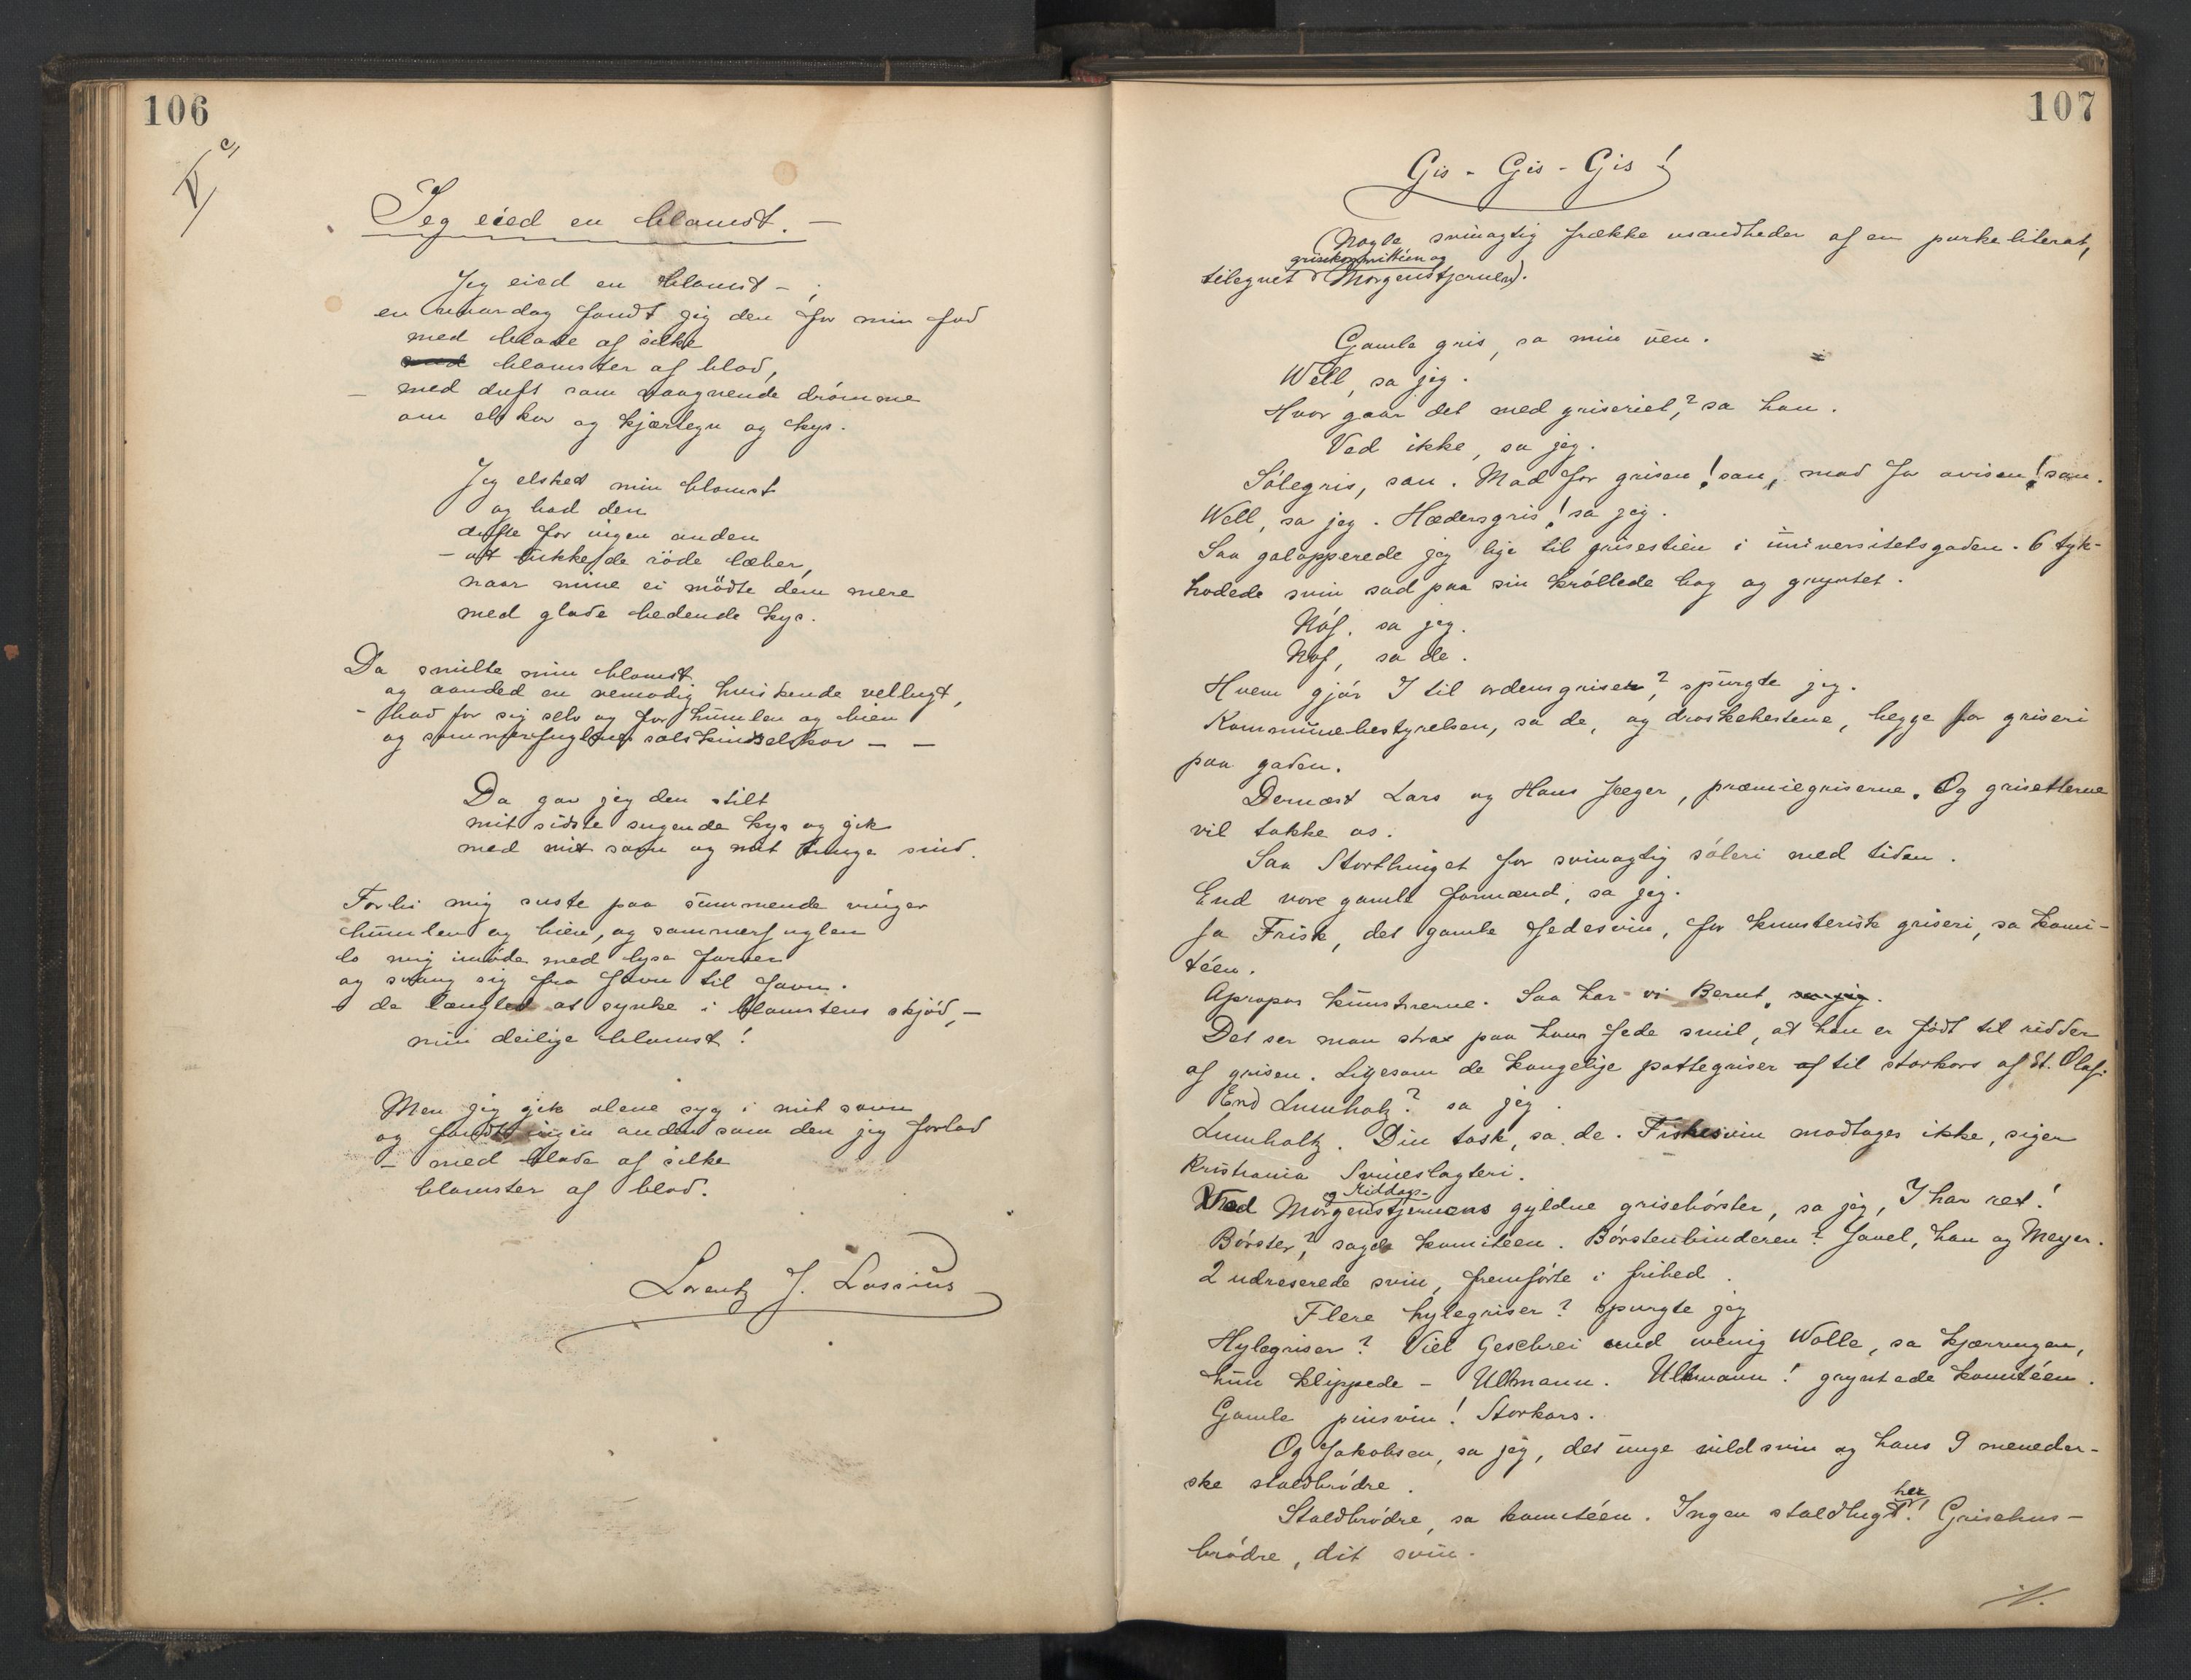 106
Jeg eied en blomst. —
Jeg eied en blomst — ;
en vaardag fandt jeg den for min fod
med blade af silke
blomster af blod,
— med duft som vaagnende drömme
om elskov og kjærtegn og kys.
Jeg elsked min blomst
og bad den
dufte for ingen anden
— at lukke de röde læber,
naar mine ei mödte dem mere
med glade bedende kys.
Da smilte min blomst
og aanded en vemodig hviskende vellugt,
— bad for sig selv og for humlen og bien
og sommerfuglens solskinselskov — —
Da gav jeg den stilt
mit sidste sugende kys og gik
med mit savn og mit tunge sind.
Forbi mig suste paa summende vinger
humlen og bien, og sommerfuglen
lo mig imöde med lyse farver
og svang sig fra favn til favn.
— de længted at synke i blomstens skjöd, —
min deilige blomst!
Men jeg gik alene syg i mit savn
og fandt ingen anden som den jeg forlod
— med blade af silke
blomster af blod.
Lorentz J. Lossius
107
Gis - Gis - Gis!
(Nogle svinagtig frække usandheder af en purkeliterat,
grisekomittéen og
tilegnet Morgenstjernen).
Gamle gris, sa min ven.
Well, sa jeg.
Hvor gaar det med griseriet? sa han.
Ved ikke, sa jeg.
Sölegris, san. Mad for grisen! san, mad for avisen! san.
Well, sa jeg. Hædersgris! sa jeg.
Saa galopperede jeg lige til grisestien i universitetsgaden. 6 tyk-
hodede svin sad paa sin kröllede bag og gryntet.
Nöf, sa jeg.
Nöf, sa de.
Hvem gjör I til ordensgriser? spurgte jeg.
Kommunebestyrelsen, sa de, og droskehestene, begge for griseri
paa gaden.
Dernæst Lars og Hans Jæger, præmiegriserne. Og grisetterne
vil takke os.
Saa Storthinget for svinagtig söleri med tiden.
End vore gamle formænd, sa jeg.
Ja Frisk, det gamle fedesvin, for kunsterisk griseri, sa komi-
téen.
Apropos kunstnerne. Saa har vi Bernt, sa jeg.
Det ser man strax paa hans fede smil, at han er födt til ridder
af grisen. Ligesom de kongelige pattegriser af til storkors af St. Olaf.
End Lumholtz? sa jeg.
Lumholtz. Din tosk, sa de. Fiskesvin modtages ikke, siger
Kristiania Svineslagteri.
og Middags-
Ved Morgenstjernens gyldne grisebörster, sa jeg, I har ret!
Börster? sagde komitéen. Börstenbinderen? Javel, han og Meyer.
2 udresserede svin, fremförte i frihed.
Flere hylegriser? spurgte jeg
Hylegriser? Viel Geschrei und wenig Wolle, sa kjærringen,
hun klippede — Ullmann. Ullmann! gryntede komitéen.
Gamle pinsvin! Storkors.
Og Jakobsen, sa jeg, det unge vildsvin og hans 9 meneder-
ske staldbrödre.
Staldbrödre, sa komitéen. Ingen staldlugt her! Grisehus-
brödre, dit svin.